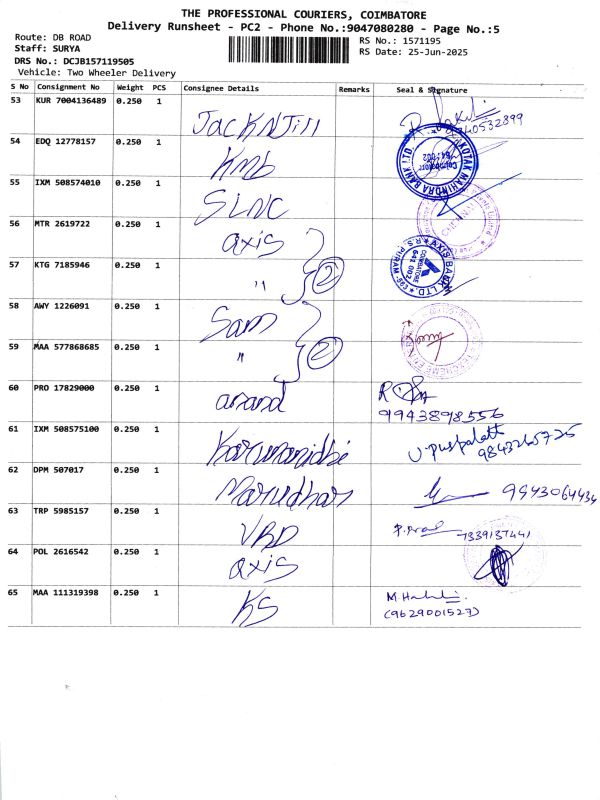 THE PROFESSIONAL COURIERS, COIMBATORE
Delivery Runsheet - PC2 - Phone No.:9047080280 - Page No.:5
Route: DB ROAD
Staff: SURYA
DRS No.: DCJB157119505
Vehicle: Two Wheeler Delivery
RS No.: 1571195
RS Date: 25-Jun-2025
S No Consignment No Weight PCS Consignee Details Remarks Seal & Signature
53 KUR 7004136489 0.250 1 Jack N Jill
54 EDQ 12778157 0.250 1 KMB
KOTAK MAHINDRA BANK LTD.
Coimbatore
641 002
55 IXM 508574010 0.250 1 SLNC
CHENNAI
56 MTR 2619722 0.250 1 axis
57 KTG 7185946 0.250 1 " 2
AXIS BANK LTD
R.S. PURAM
COIMBATORE
641 002
58 AWY 1226091 0.250 1 Sam
59 MAA 577868685 0.250 1 " 2
60 PRO 17829000 0.250 1 anand
9943898556
61 IXM 508575100 0.250 1 Karunanidhi
9843265725
62 DPM 507017 0.250 1 Marudhar 9943064434
63 TRP 5985157 0.250 1 VBD 7339137441
64 POL 2616542 0.250 1 axis
65 MAA 111319398 0.250 1 KS
(9629001527)